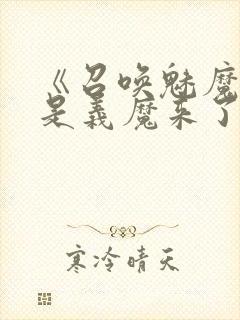 《召唤魅魔
是义魔来了
寒冷晴天